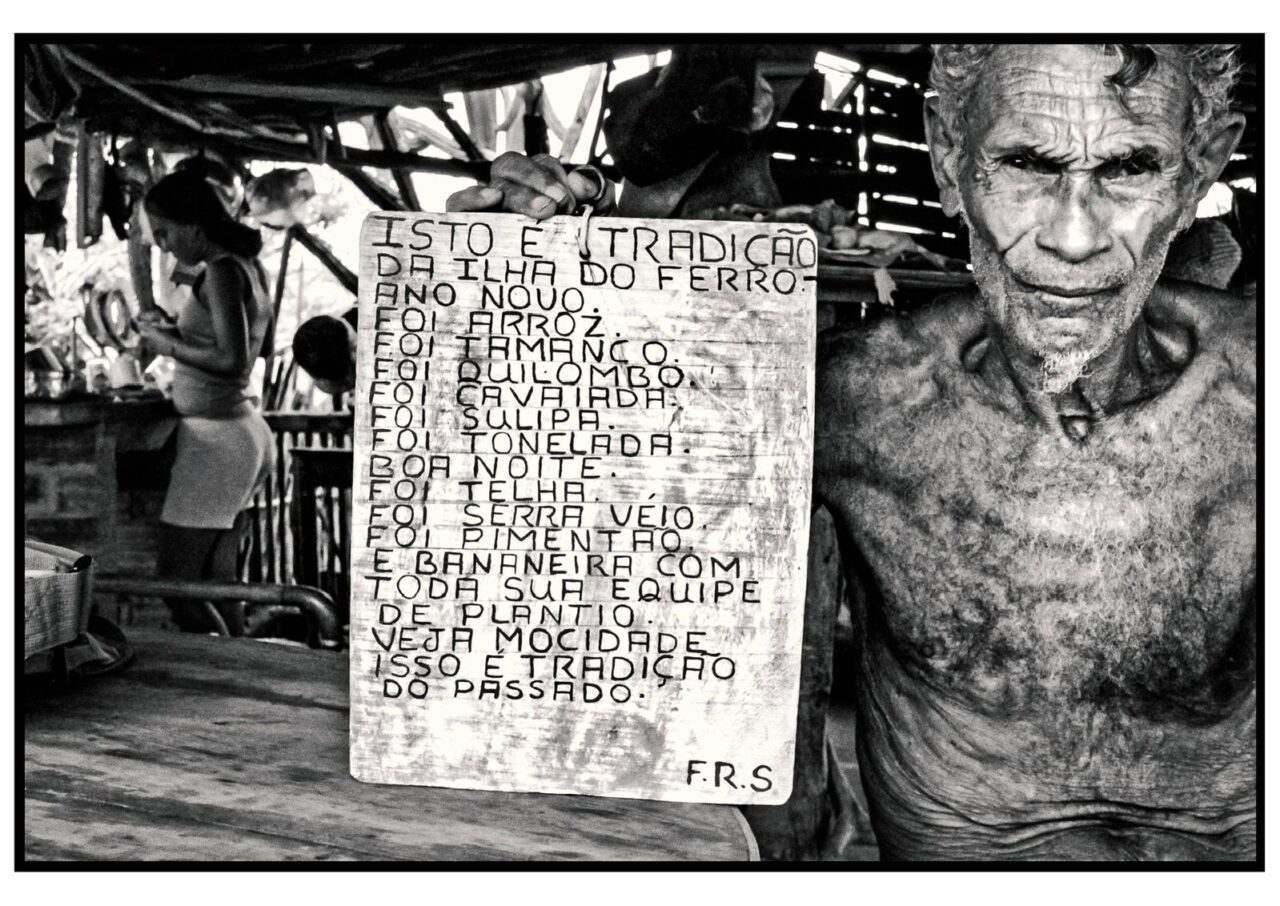 ISTO E TRADIÇÃO
DA ILHA DO FERRO-
ANO NOVO.
FOI ARROZ.
FOI TAMANCO.
FOI QUILOMBO.
FOI CAVAIADA.
FOI SULIPA.
FOI TONELADA.
BOA NOITE.
FOI TELHA.
FOI SERRA VÉIO.
FOI PIMENTÃO.
E BANANEIRA COM
TODA SUA EQUIPE
DE PLANTIO.
VEJA MOCIDADE
ISSO É TRADIÇÃO
DO PASSADO.
F.R.S